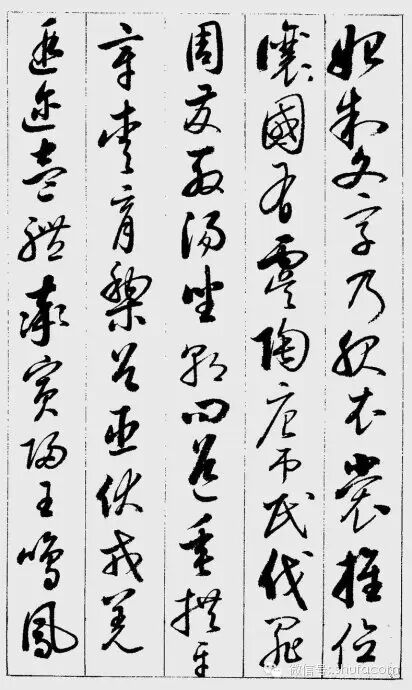 始制文字乃服衣裳推位
讓國有虞陶唐吊民伐罪
周發殷湯坐朝問道垂拱平
章愛育黎首臣伏戎羌
遐邇壹體率賓歸王鳴鳳
微信号: shufacom